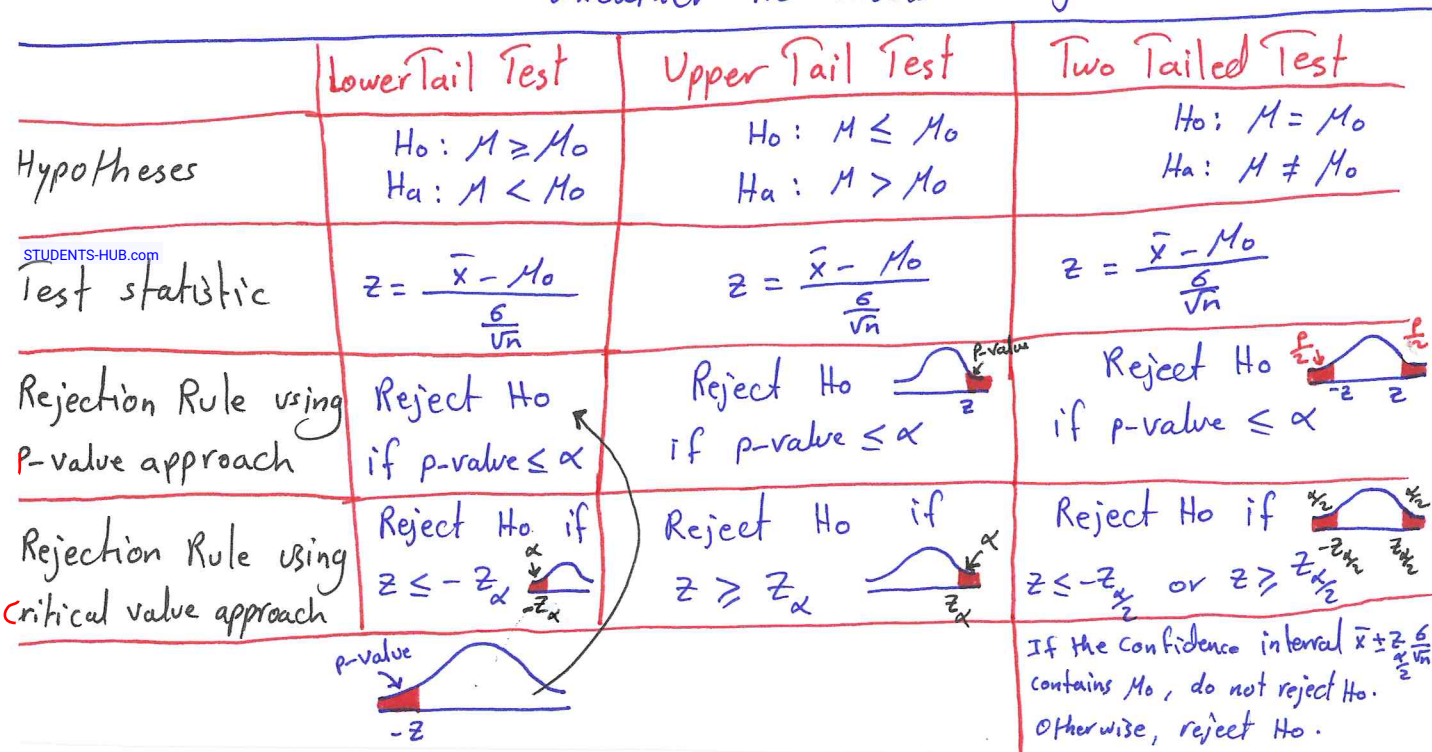 Lower Tail Test Upper Tail Test Two Tailed Test
Hypotheses
Ho : μ ≥ μo
Ha : μ < μo
Ho : μ ≤ μo
Ha : μ > μo
Ho : μ = μo
Ha : μ ≠ μo
STUDENTS-HUB.com
Test statistic
z = (x̄ - μo) / (σ/√n)
z = (x̄ - μo) / (σ/√n)
z = (x̄ - μo) / (σ/√n)
Rejection Rule using
P-value approach
Reject Ho
if p-value ≤ α
Reject Ho
if p-value ≤ α
p-value
z
Reject Ho
if p-value ≤ α
p/2
p/2
-z z
Rejection Rule using
Critical value approach
Reject Ho if
z ≤ - zα
α
-zα
Reject Ho if
z ≥ zα
α
zα
Reject Ho if
z ≤ -zα/2 or z ≥ zα/2
α/2 α/2
-zα/2 zα/2
p-value
-z
If the Confidence interval x̄ ± zα/2 σ/√n
contains μo, do not reject Ho.
Otherwise, reject Ho.